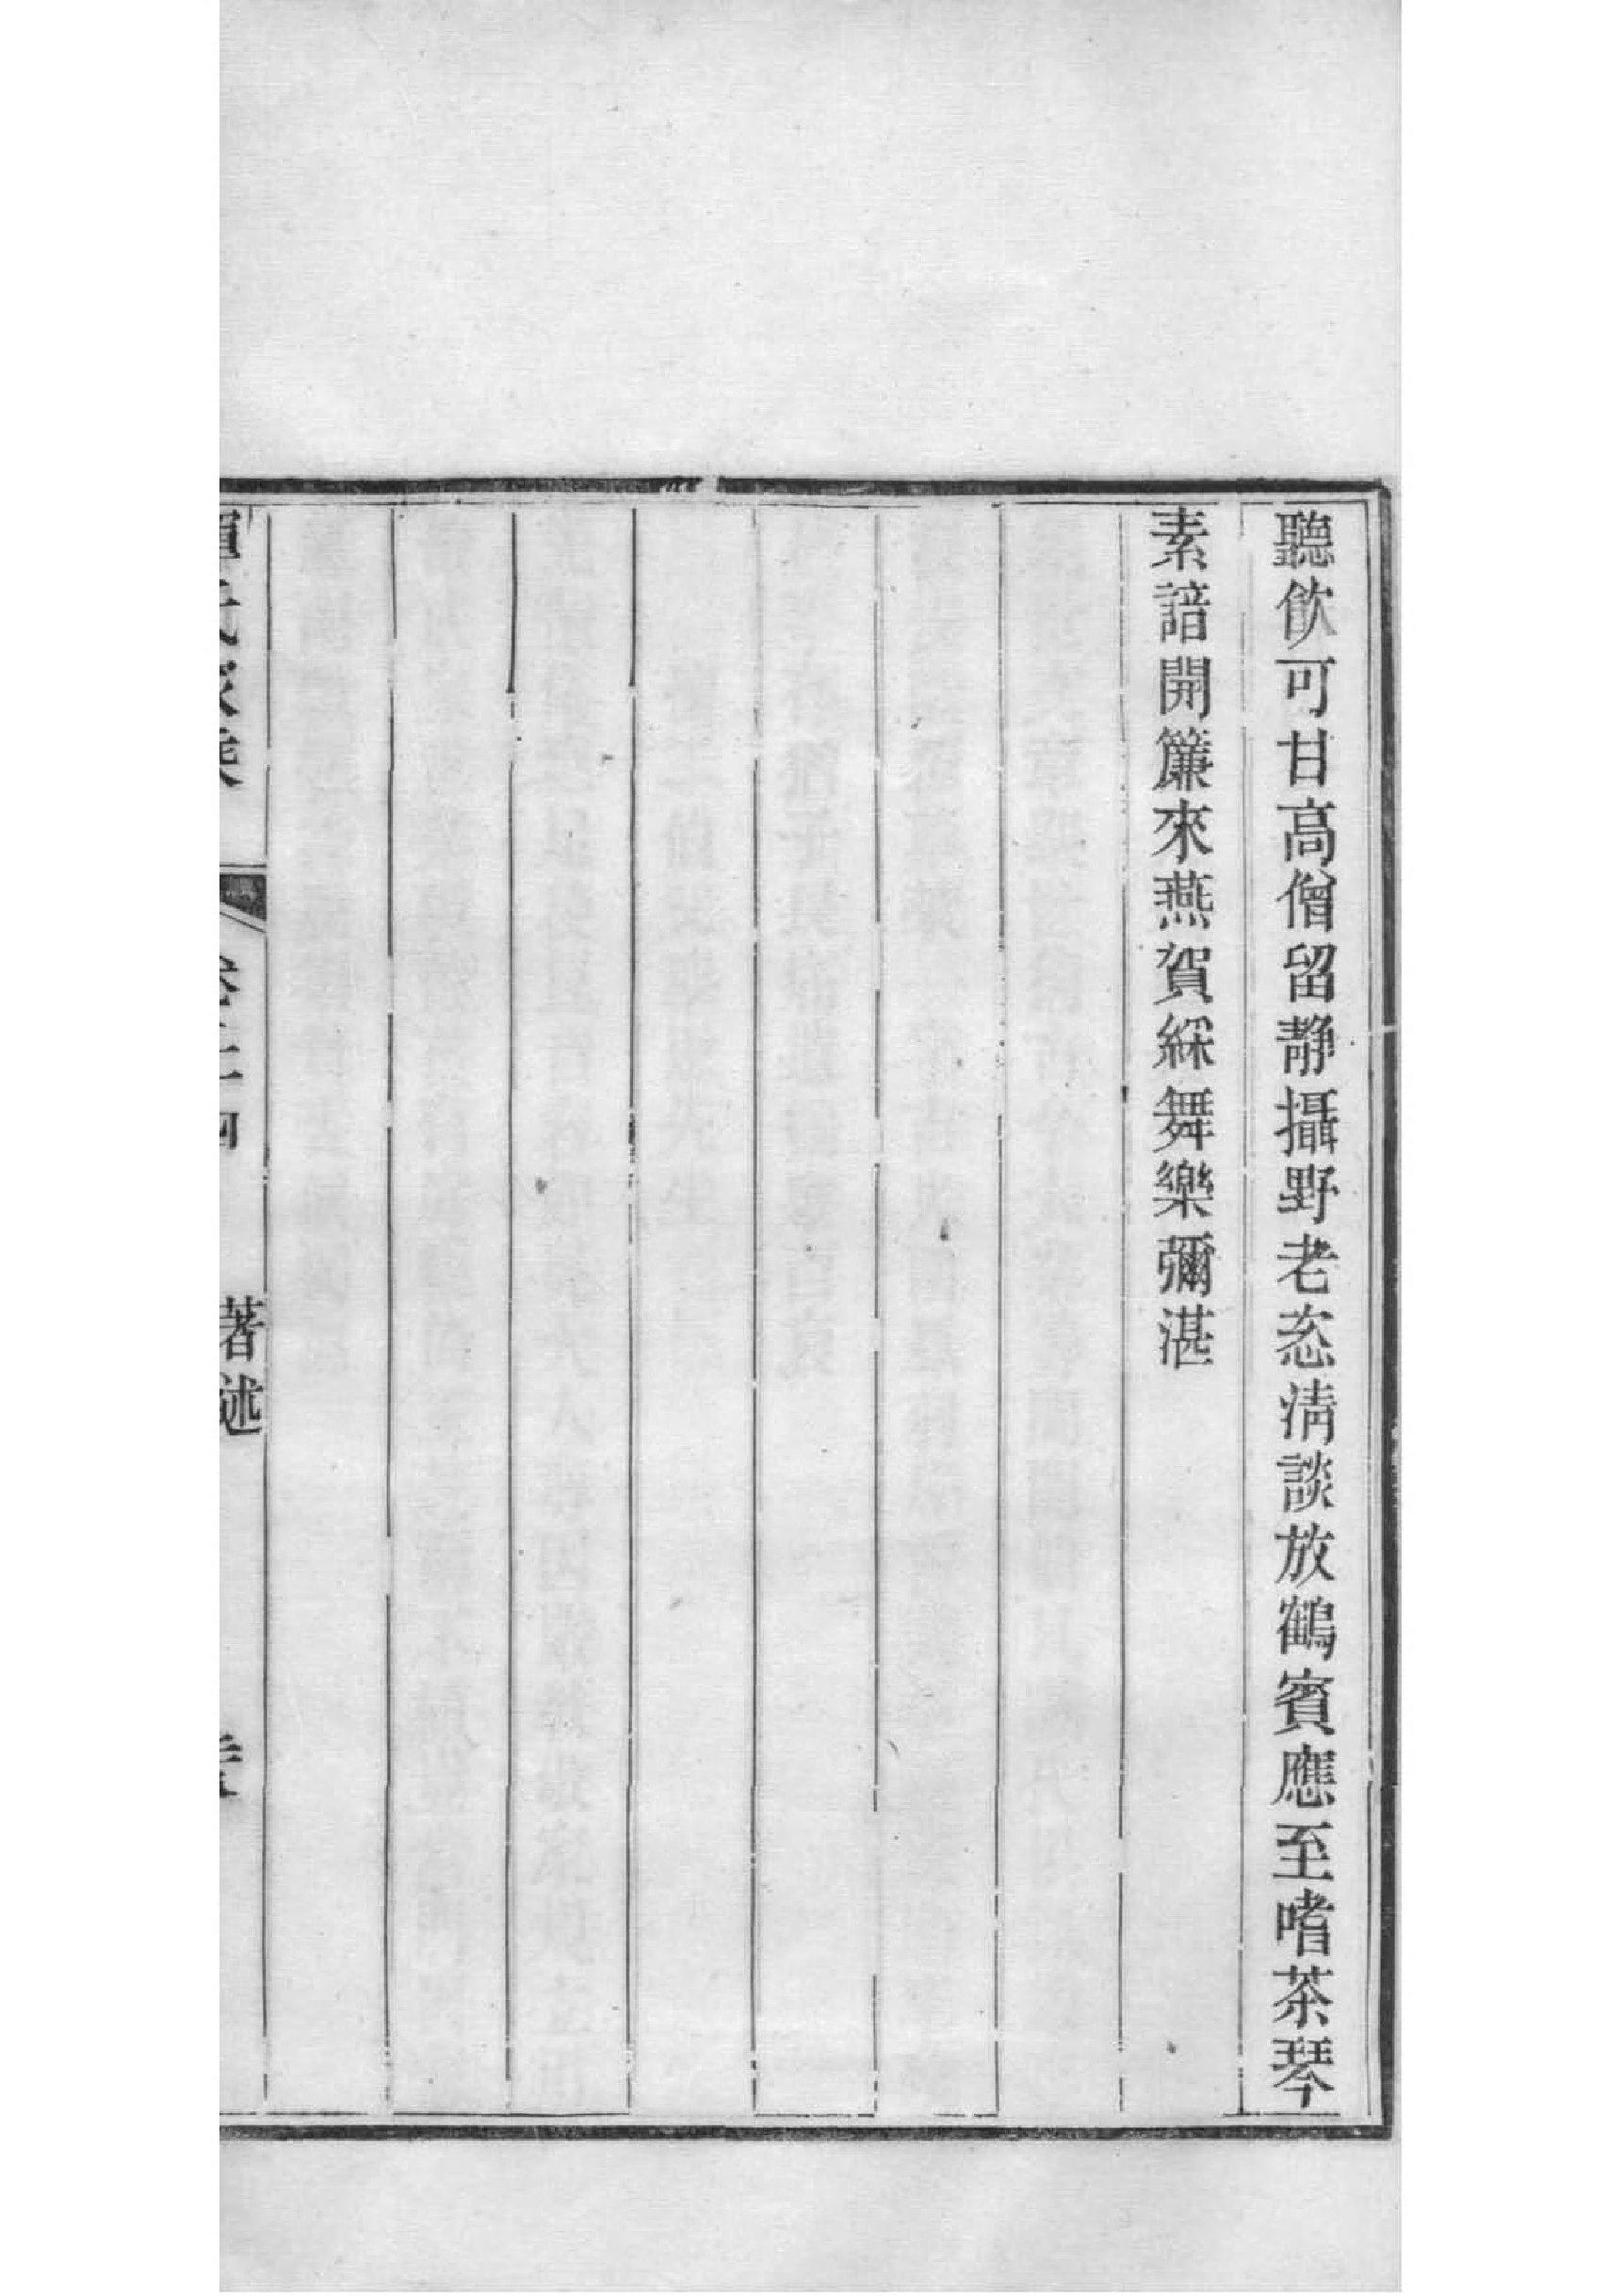 聽飲可甘高僧留靜攝野老恣清談放鶴賓應至嗜茶琴
素諳開簾來燕賀綵舞樂彌湛
著述